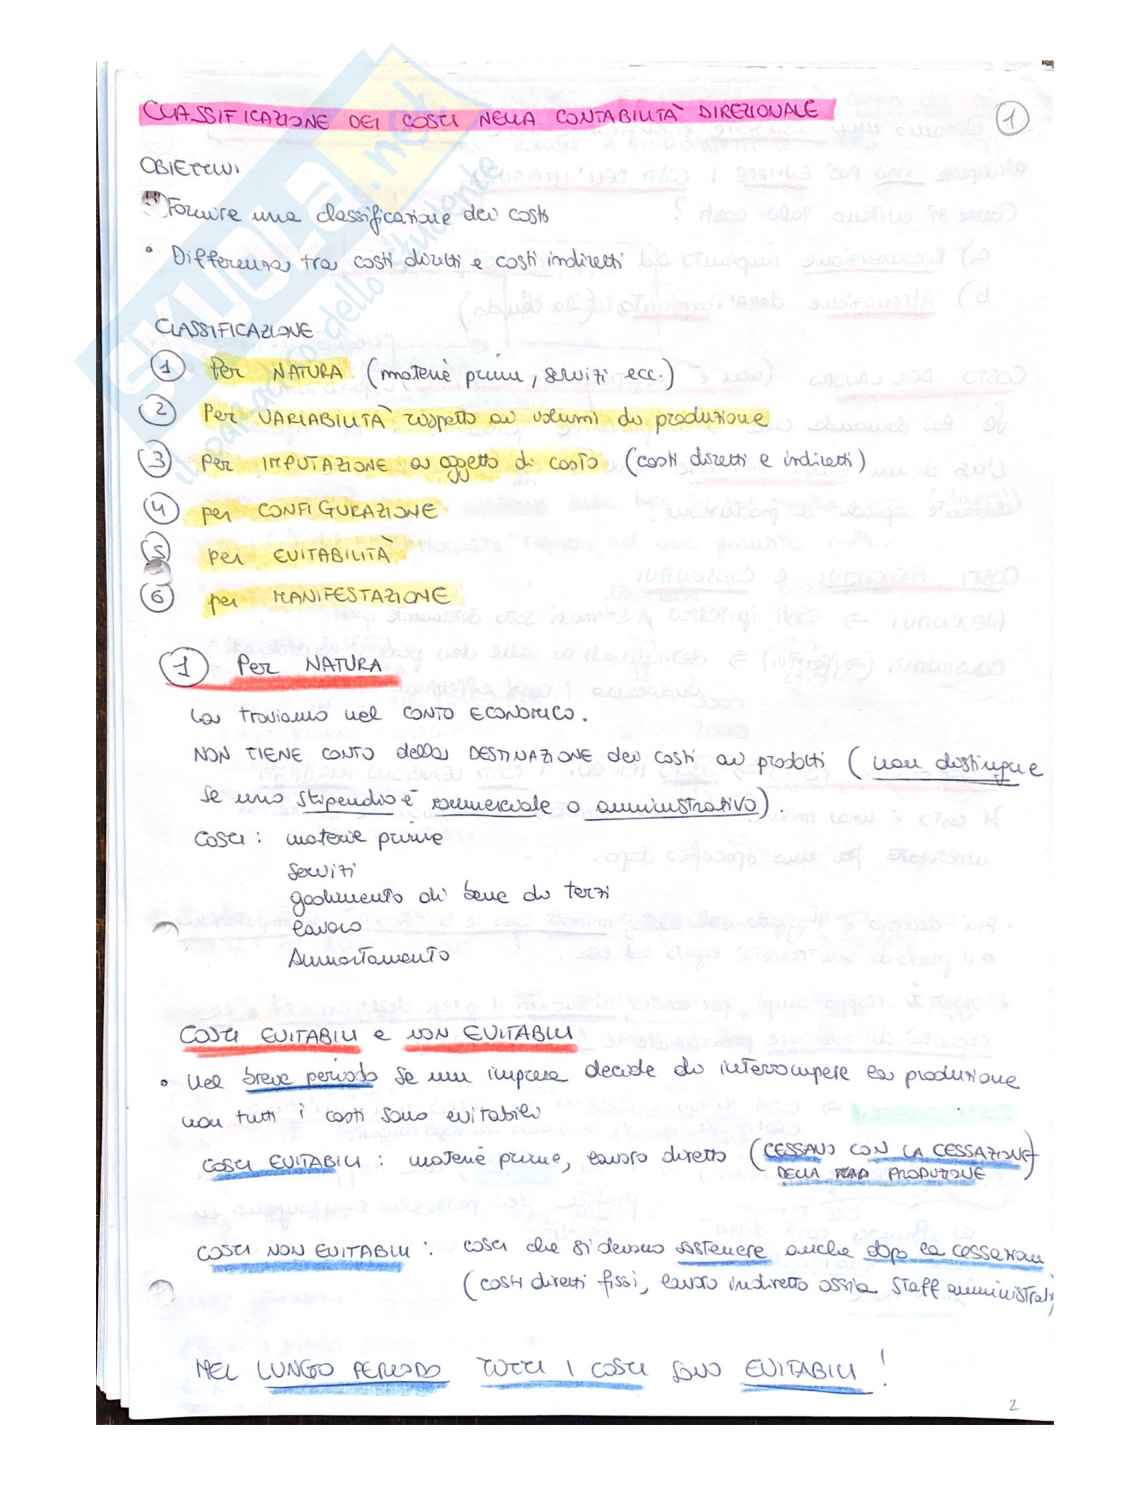 CLASSIFICAZIONE DEI COSTI NELLA CONTABILITÀ DIREZIONALE
1
OBIETTIVI
Fornire una classificazione dei costi
• Differenza tra costi diretti e costi indiretti
CLASSIFICAZIONE
1 Per NATURA (materie prime, servizi ecc.)
2 Per VARIABILITÀ rispetto ai volumi di produzione
3 Per IMPUTAZIONE a oggetto di costo (costi diretti e indiretti)
4 per CONFIGURAZIONE
5 per EVITABILITÀ
6 per MANIFESTAZIONE
1 Per NATURA
La troviamo nel CONTO ECONOMICO.
NON TIENE CONTO della DESTINAZIONE dei costi ai prodotti (non distingue
se uno stipendio è commerciale o amministrativo).
COSTI: materie prime
servizi
godimento di bene di terzi
lavoro
Ammortamento
COSTI EVITABILI e NON EVITABILI
• Nel breve periodo se un impresa decide di interrompere la produzione
non tutti i costi sono evitabili
COSTI EVITABILI: materie prime, lavoro diretto (CESSANO CON LA CESSAZIONE
DELLA PRODUZIONE)
COSTI NON EVITABILI: costi che si devono sostenere anche dopo la cessazion
(costi diretti fissi, lavoro indiretto ossia staff amministrati
NEL LUNGO PERIODO TUTTI I COSTI SONO EVITABILI!
2
SKUOLA.net
il paradiso dello studente